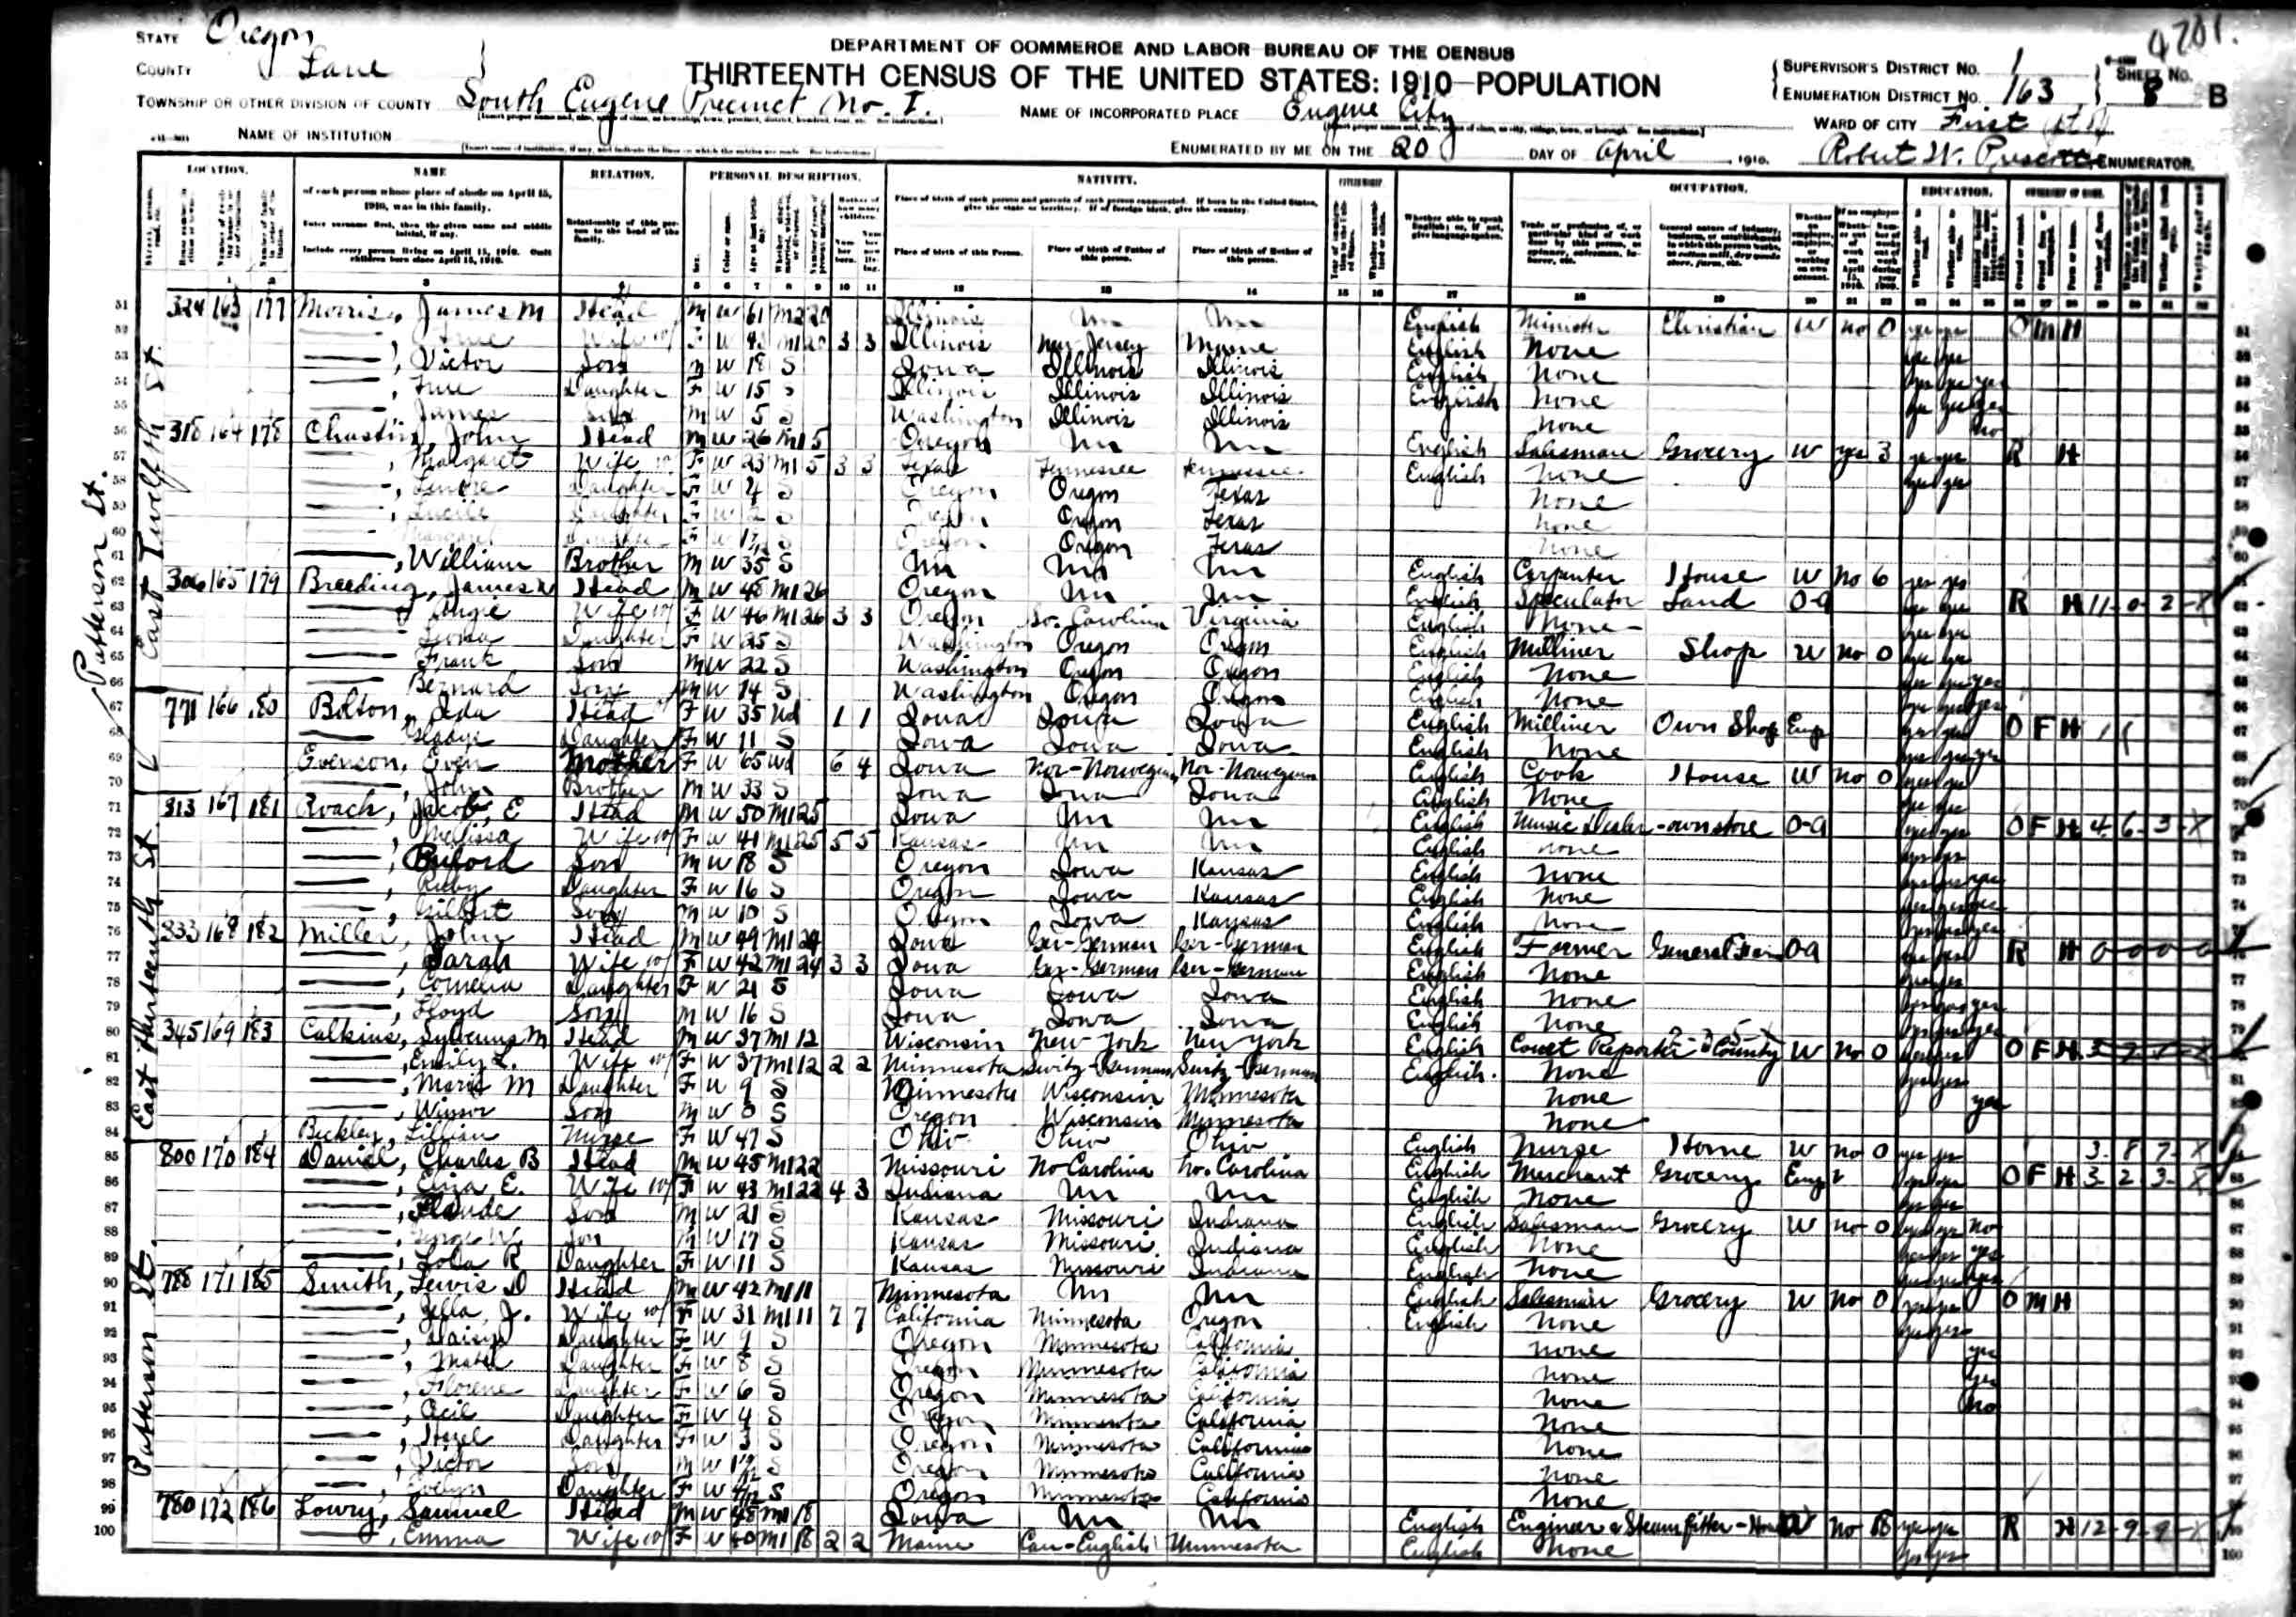 4701.
STATE Oregon
COUNTY Lane
DEPARTMENT OF COMMERCE AND LABOR-BUREAU OF THE CENSUS
THIRTEENTH CENSUS OF THE UNITED STATES: 1910-POPULATION
SUPERVISOR'S DISTRICT No. 1
ENUMERATION DISTRICT No. 163
SHEET No. 8 B
TOWNSHIP OR OTHER DIVISION OF COUNTY South Eugene Precinct No. I.
NAME OF INCORPORATED PLACE Eugene City
WARD OF CITY First
NAME OF INSTITUTION
ENUMERATED BY ME ON THE 20 DAY OF April, 1910. Robert W. Prescott, ENUMERATOR.
LOCATION. NAME RELATION. PERSONAL DESCRIPTION. NATIVITY. CITIZENSHIP. OCCUPATION. EDUCATION.
of each person whose place of abode on April 15, 1910, was in this family.
Enter surname first, then the given name and middle initial, if any.
Include every person living on April 15, 1910. Omit children born since April 15, 1910.
Relationship of this person to the head of the family.
Place of birth of this Person. Place of birth of Father of this person. Place of birth of Mother of this person.
Patterson St.
East Twelfth St.
East thirteenth St.
Patterson St.
51 324 163 177 Morris, James M Head M W 61 M2 20 Illinois Un Un English Minister Christian W no 0 yes yes O M H
52 Wife F W 43 M1 20 3 3 Illinois New Jersey Maine English None yes yes
53 Victor Son M W 18 S Iowa Illinois Illinois English None yes yes yes
54 Daughter F W 15 S Illinois Illinois Illinois English None yes yes yes
55 James Son M W 5 S Washington Illinois Illinois None no
56 318 164 178 John Head M W 26 M1 5 Oregon Un Un English Salesman Grocery W yes 3 yes yes R H
57 Margaret Wife F W 23 M1 5 3 3 Texas Tennessee Tennessee English None yes yes
58 Lenore Daughter F W 4 S Oregon Oregon Texas None
59 Lucile Daughter F W 2 S Oregon Oregon Texas None
60 Margaret Daughter F W S Oregon Oregon Texas None
61 William Brother M W 35 S Un Un Un English Carpenter House W no 6 yes yes
62 306 165 179 Breeding, James W Head M W 48 M1 26 Oregon Un Un English Speculator Land O-a yes yes R H 11-0-2-X
63 Angie Wife F W 46 M1 26 3 3 Oregon So. Carolina Virginia English None yes yes
64 Daughter F W 25 S Washington Oregon Oregon English Milliner Shop W no 0 yes yes
65 Frank Son M W 22 S Washington Oregon Oregon English None yes yes yes
66 Bernard Son M W 14 S Washington Oregon Oregon English None yes yes yes
67 771 166 180 Bolton, Ida Head F W 35 Wd 1 1 Iowa Iowa Iowa English Milliner Own Shop Emp yes yes O F H
68 Gladys Daughter F W 11 S Iowa Iowa Iowa English None yes yes yes
69 Evenson, Even Mother F W 65 Wd 6 4 Iowa Nor-Norwegian Nor-Norwegian English Cook House W no 0 yes yes
70 John Brother M W 33 S Iowa Iowa Iowa English None yes yes
71 313 167 181 Roach, Jacob, E Head M W 50 M1 25 Iowa Un Un English Music Dealer - own store O-a yes yes O F H 4-6-3-X
72 Mellissa Wife F W 41 M1 25 5 5 Kansas Un Un English None yes yes
73 Buford Son M W 18 S Oregon Iowa Kansas English None yes yes yes
74 Ruby Daughter F W 16 S Oregon Iowa Kansas English None yes yes yes
75 Gilbert Son M W 10 S Oregon Iowa Kansas English None yes yes yes
76 333 168 182 Miller, John Head M W 49 M1 24 Iowa Ger-German Ger-German English Farmer General Farm O-a yes yes R H 0-0-0-0
77 Sarah Wife F W 42 M1 24 3 3 Iowa Ger-German Ger-German English None yes yes
78 Cornelia Daughter F W 21 S Iowa Iowa Iowa English None yes yes yes
79 Lloyd Son M W 16 S Iowa Iowa Iowa English None yes yes yes
80 345 169 183 Calkins, Sylvenus M Head M W 37 M1 12 Wisconsin New York New York English Court Reporter County W No 0 yes yes O F H
81 Emily L. Wife F W 37 M1 12 2 2 Minnesota Switz-German Switz-German English None yes yes
82 Marie M Daughter F W 9 S Minnesota Wisconsin Minnesota None yes
83 Winsor Son M W 0 S Oregon Wisconsin Minnesota None
84 Beckley, Lillian Nurse F W 47 S Ohio Ohio Ohio English Nurse Home W no 0 yes yes 3-8-7-X
85 800 170 184 Daniel, Charles B Head M W 45 M1 22 Missouri No Carolina No. Carolina English Merchant Grocery Emp yes yes O F H 3-2-3-X
86 Eliza E. Wife F W 43 M1 22 4 3 Indiana Un Un English None yes yes
87 Claude Son M W 21 S Kansas Missouri Indiana English Salesman Grocery W no 0 yes yes no
88 George W. Son M W 17 S Kansas Missouri Indiana English None yes yes yes
89 Lola R Daughter F W 11 S Kansas Missouri Indiana English None yes yes yes
90 788 171 185 Smith, Lewis D Head M W 42 M1 11 Minnesota Un Un English Salesman Grocery W No 0 yes yes O M H
91 Zella, J. Wife F W 31 M1 11 7 7 California Minnesota Oregon English None yes yes
92 Daisy Daughter F W 9 S Oregon Minnesota California None yes
93 Mabel Daughter F W 8 S Oregon Minnesota California None yes
94 Florene Daughter F W 6 S Oregon Minnesota California None no
95 Daughter F W 4 S Oregon Minnesota California None
96 Hazel Daughter F W 3 S Oregon Minnesota California None
97 Victor Son M W S Oregon Minnesota California None
98 Evelyn Daughter F W S Oregon Minnesota California None
99 780 172 186 Lowry, Samuel Head M W 48 M1 18 Iowa Un Un English Engineer & Steam fitter W no 18 yes yes R H 12-9-9-X
100 Emma Wife F W 40 M1 18 2 2 Maine Can-English Minnesota English None yes yes